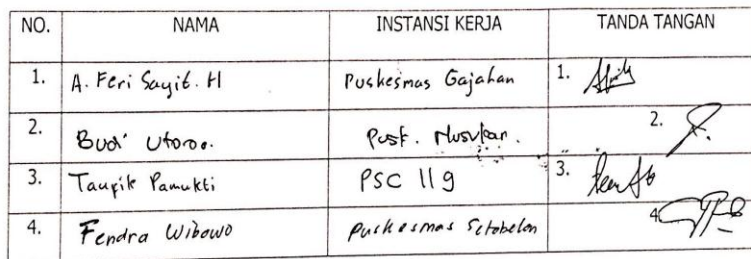 NO. NAMA INSTANSI KERJA TANDA TANGAN
1. A. Feri Sayit. H Puskesmas Gajahan 1.
2. Budi Utomo. Pusk. Nusukan. 2.
3. Taufik Pamukti PSC 119 3.
4. Fendra Wibowo Puskesmas Setabelan 4.